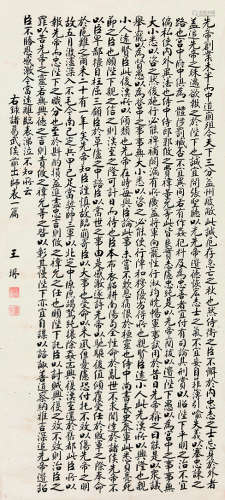 先帝創業未半而中道崩殂今天下三分益州疲敝此誠危急存亡之秋也然侍衛之臣不懈於內忠志之士忘身於外者
盖追先帝之殊遇欲報之於陛下也誠宜開張聖聽以光先帝遺德恢弘志士之氣不宜妄自菲薄引喻失義以塞忠諫之
路也宮中府中俱為一體陟罰臧否不宜異同若有作奸犯科及為忠善者宜付有司論其刑賞以昭陛下平明之治不宜
偏私使內外異法也侍中侍郎郭攸之費禕董允等此皆良實志慮忠純是以先帝簡拔以遺陛下愚以為宮中之事事無
大小悉以咨之然後施行必能裨補闕漏有所廣益將軍向寵性行淑均曉暢軍事試用於昔日先帝稱之曰能是以眾議
舉寵以為督愚以為營中之事事無大小悉以咨之必能使行陣和穆優劣得所也親賢臣遠小人此先漢所以興隆也親
小人遠賢臣此後漢所以傾頹也先帝在時每與臣論此事未嘗不歎息痛恨於桓靈也侍中尚書長史參軍此悉貞亮死
節之臣也願陛下親之信之則漢室之隆可計日而待也臣本布衣躬耕南陽苟全性命於亂世不求聞達於諸侯先帝不
以臣卑鄙猥自枉屈三顧臣於草廬之中諮臣以當世之事由是感激遂許先帝以驅馳後值傾覆受任於敗軍之際奉命
於危難之間爾來二十有一年矣先帝知臣謹慎故臨崩寄臣以大事也受命以來夙夜憂歎恐託付不效以傷先帝之明
故五月渡瀘深入不毛今南方已定兵甲已足當獎率三軍北定中原庶竭駑鈍攘除姦凶興復漢室還於舊都此臣所以
報先帝而忠陛下之職分也至於斟酌損益進盡忠言則攸之禕允之任也願陛下託臣以討賊興復之效不效則治臣之
罪以告先帝之靈若無興德之言則責攸之禕允等咎以彰其慢陛下亦宜自謀以諮諏善道察納雅言深追先帝遺詔
臣不勝受恩感激今當遠離臨表涕泣不知所云
右錄諸葛武侯前出師表一篇
王